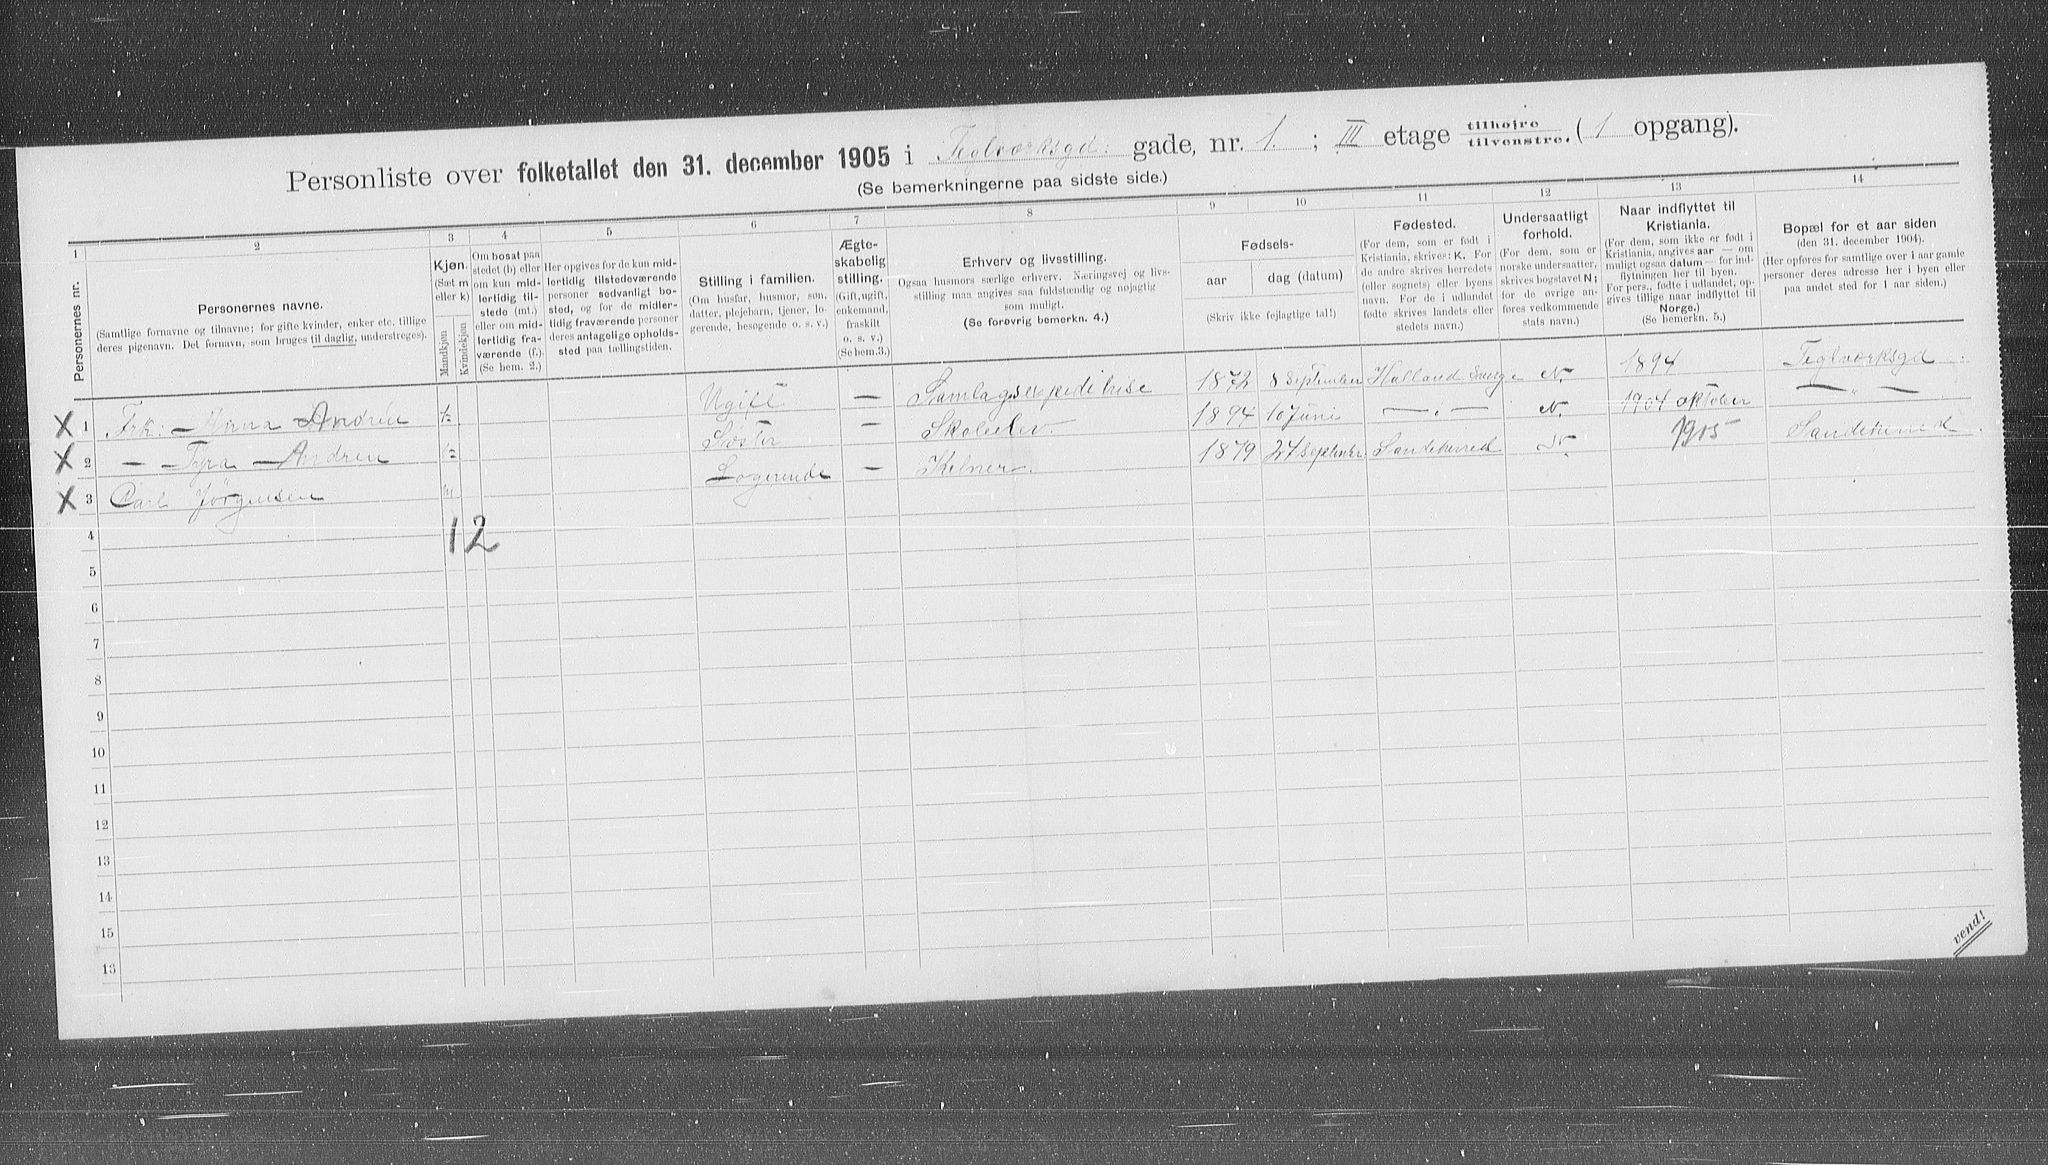 Personliste over folketallet den 31. december 1905 i Teglværksgd: gade, nr. 1. ; III etage tilhøjre/tilvenstre. ( 1 opgang).
(Se bemerkningerne paa sidste side.)
1 2 3 4 5 6 7 8 9 10 11 12 13 14
Personernes nr.
Personernes navne.
(Samtlige fornavne og tilnavne; for gifte kvinder, enker etc. tillige
deres pigenavn. Det fornavn, som bruges til daglig, understreges).
Kjøn.
(Sæt m
eller k)
Mandkjøn
Kvindekjøn
Om bosat paa
stedet (b) eller
om kun mid-
lertidig til-
stede (mt.)
eller om mid-
lertidig fra-
værende (f.).
(Se bem. 2.)
Her opgives for de kun mid-
lertidig tilstedeværende
personer sedvanligt bo-
sted, og for de midler-
tidig fraværende personer
deres antagelige opholds-
sted paa tællingstiden.
Stilling i familien.
(Om husfar, husmor, søn,
datter, plejebarn, tjener, lo-
gerende, besøgende o. s. v.)
Ægte-
skabelig
stilling.
(Gift, ugift,
enkemand,
fraskilt
o. s. v.)
(Se bem.3.)
Erhverv og livsstilling.
Ogsaa husmors særlige erhverv. Næringsvej og livs-
stilling maa angives saa fuldstændig og nøjagtig
som muligt.
(Se forøvrig bemerkn. 4.)
Fødsels-
aar dag (datum)
(Skriv ikke fejlagtige tal!)
Fødested.
(For dem, som er født i
Kristiania, skrives: K. For
de andre skrives herredets
(eller sognets) eller byens
navn. For de i udlandet
fødte skrives landets eller
stedets navn.)
Undersaatligt
forhold.
(For dem, som er
norske undersaatter,
skrives bogstavet N;
for de øvrige an-
føres vedkommende
stats navn.)
Naar indflyttet til
Kristiania.
(For dem, som ikke er født i
Kristiania, angives aar — om
muligt ogsaa datum — for ind-
flytningen her til byen.
For pers., fødte i udlandet, op-
gives tillige naar indflyttet til
Norge.)
(Se bemerkn. 5.)
Bopæl for et aar siden
(den 31. december 1904).
(Her opføres for samtlige over 1 aar gamle
personer deres adresse her i byen eller
paa andet sted for 1 aar siden.)
X 1 Frk: — Anna Andrén k Ugift — Samlagsexpeditrise 1872 8 September Halland Sverge N. 1894 Teglværksgd
X 2 — — Tyra — Andrén k Søster — Skoleelev. 1894 10 Juni — " — N. 1904 oktober — " —
X 3 Carl Jörgensen m Logerende — Kelner. 1879 27 September Sandeherred N. 1905 Sandeherred
4 12
5
6
7
8
9
10
11
12
13
14
15
13
vend!